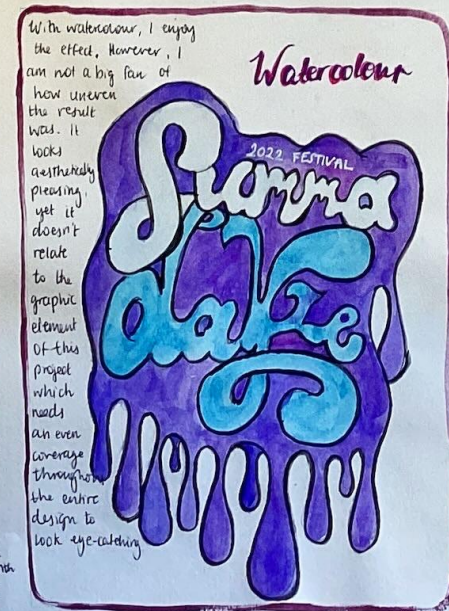 Watercolour
With watercolour, I enjoy
the effect. However, I
am not a big fan of
how uneven
the result
was. It
looks
aesthetically
pleasing,
yet it
doesn't
relate
to the
graphic
element
of this
project
which
needs
an even
coverage
throughout
the entire
design to
look eye-catching
2022 FESTIVAL
Summa
daze